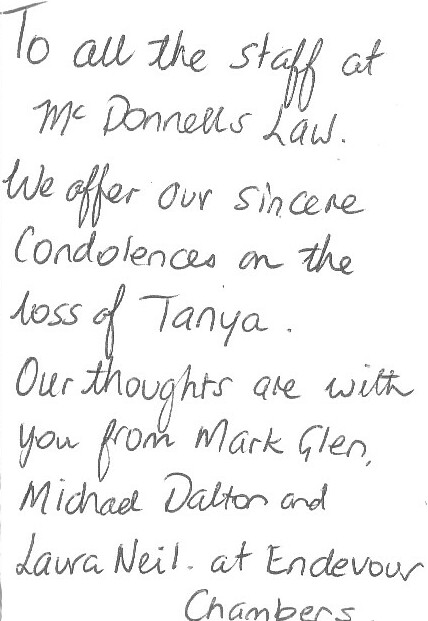 To all the staff at
McDonnells Law.
We offer our sincere
Condolences on the
loss of Tanya.
Our thoughts are with
you from Mark Glen,
Michael Dalton and
Laura Neil. at Endevour
Chambers.